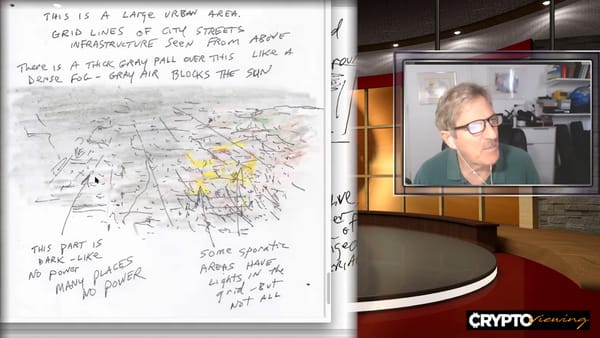 THIS IS A LARGE URBAN AREA.
GRID LINES OF CITY STREETS
INFRASTRUCTURE SEEN FROM ABOVE
THERE IS A THICK GRAY PALL OVER THIS LIKE A
DENSE FOG - GRAY AIR BLOCKS THE SUN
THIS PART IS
DARK - LIKE
NO POWER
MANY PLACES
NO POWER
SOME SPORATIC
AREAS HAVE
LIGHTS IN THE
GRID - BUT
NOT ALL
CRYPTO Viewing